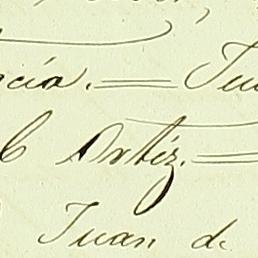 cía. — Ju
C Ortiz. —
Juan de